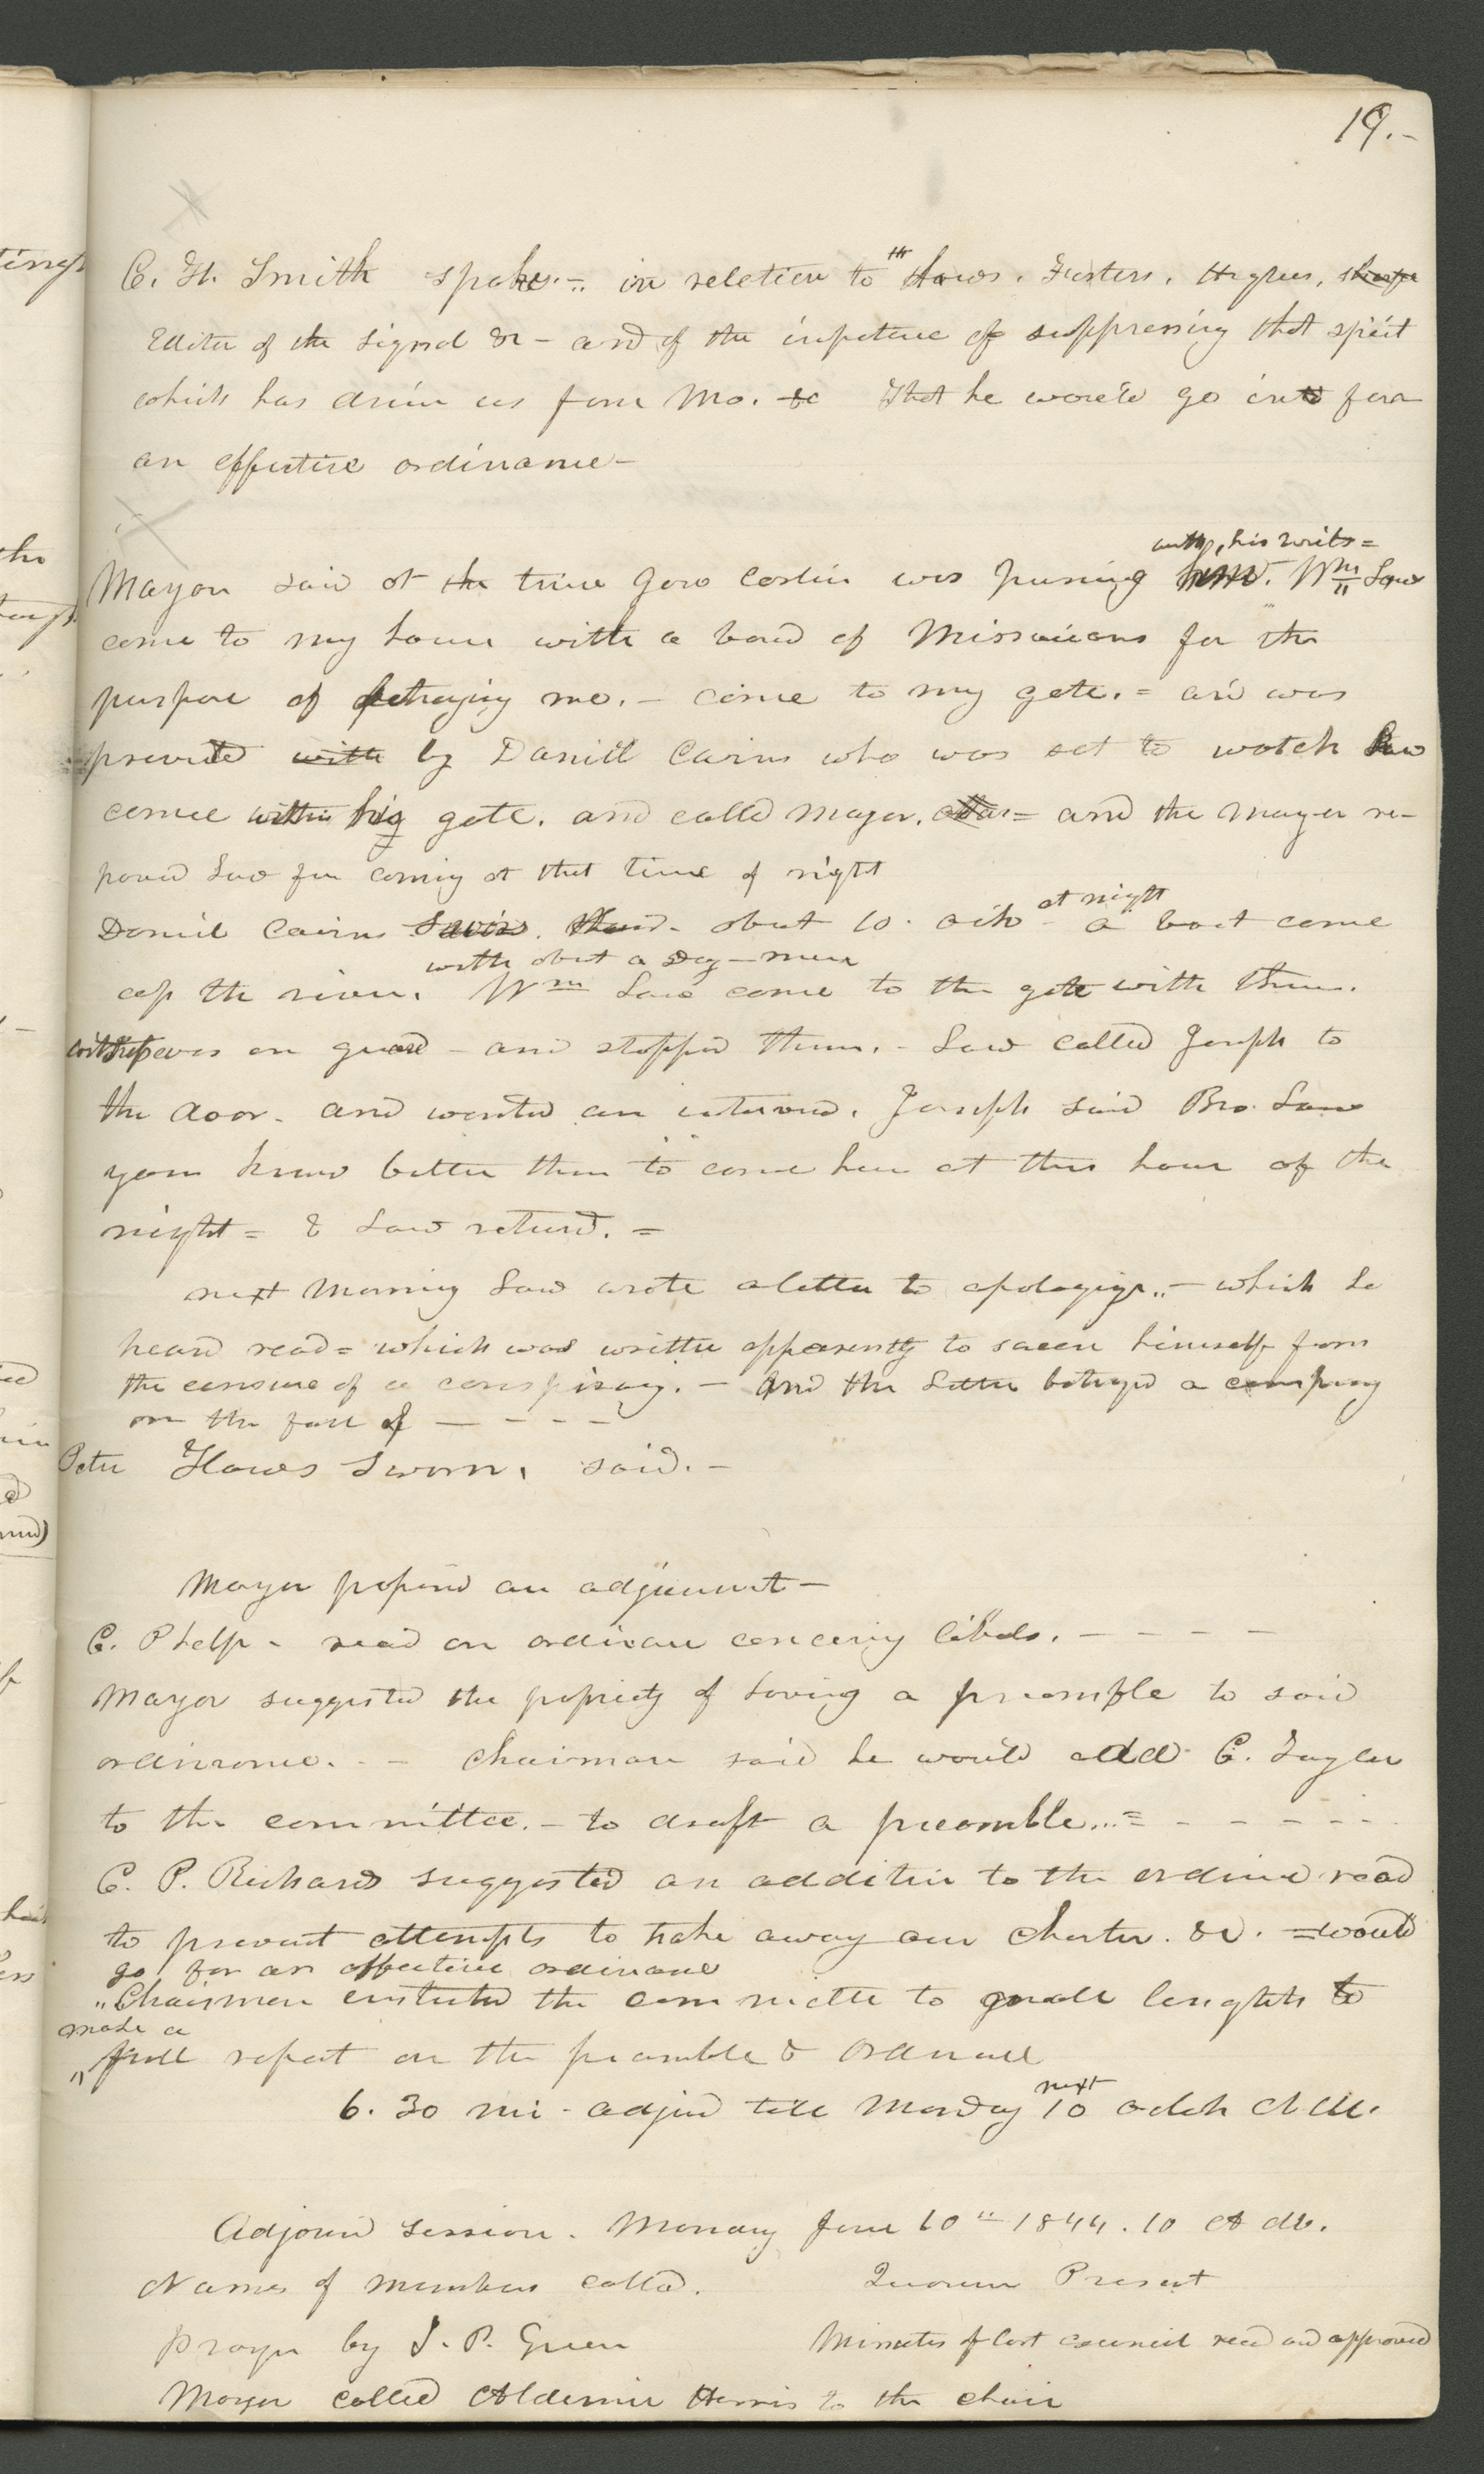 19.-
C. H. Smith spoke.- in relation to the Laws. Fosters. Higbees,
Editor of the Signal &c - and of the importance of suppressing that spirit
which has driven us from Mo. &c That he would go in for
an effective ordinance-
with his writs =
Mayor said at the time Gov Carlin was pursuing Wm Law
come to my house with a band of Missourians for the
purpose of betraying me. - come to my gate. = and was
prevented with by Daniel Cairns who was set to watch Law
come within his gate. and called Mayor. = and the mayor re-
proved Law for coming at that time of night
Daniel Cairns Sworn. said. about 10 o'clo at night a boat come
with about a Doz - men
up the river. Wm Law come to the gate with them.
witness was on guard - and stopped them. - Law called Joseph to
the door. and wanted an interview. Joseph said Bro. Law
you know better than to come here at this hour of the
night = & Law returnd. =
next Morning Law wrote a letter to apologize.. - which he
heard read = which was written apparently to screen himself from
the censure of a conspiracy. - And the Letter betrayed a conspiracy
on the face of - - - -
Peter Haws Sworn, said. -
Mayor proposed an adjournment -
C. Phelps - read an ordinance concerning libels. - - - -
Mayor suggested the propriety of having a preamble to said
ordinance. - - Chairman said he would add C. Taylor
to the committee. - to draft a preamble... = - - - - -
C. P. Richards suggested an addition to the ordinance read
to prevent attempts to take away our Charter. &c. = would
go for an effective ordinance
" Chairman instructed the committee to lengths to
make a
" full report on the preamble & Ordinance
6. 30 mi - adjournd till Monday next 10 oclock A.M.
Adjournd Session. Monday June 10th 1844. 10 A M.
Names of members called. Quorum Present
prayer by J. P. Green Minutes of last council read and approved
Mayor called Alderman Harris to the chair